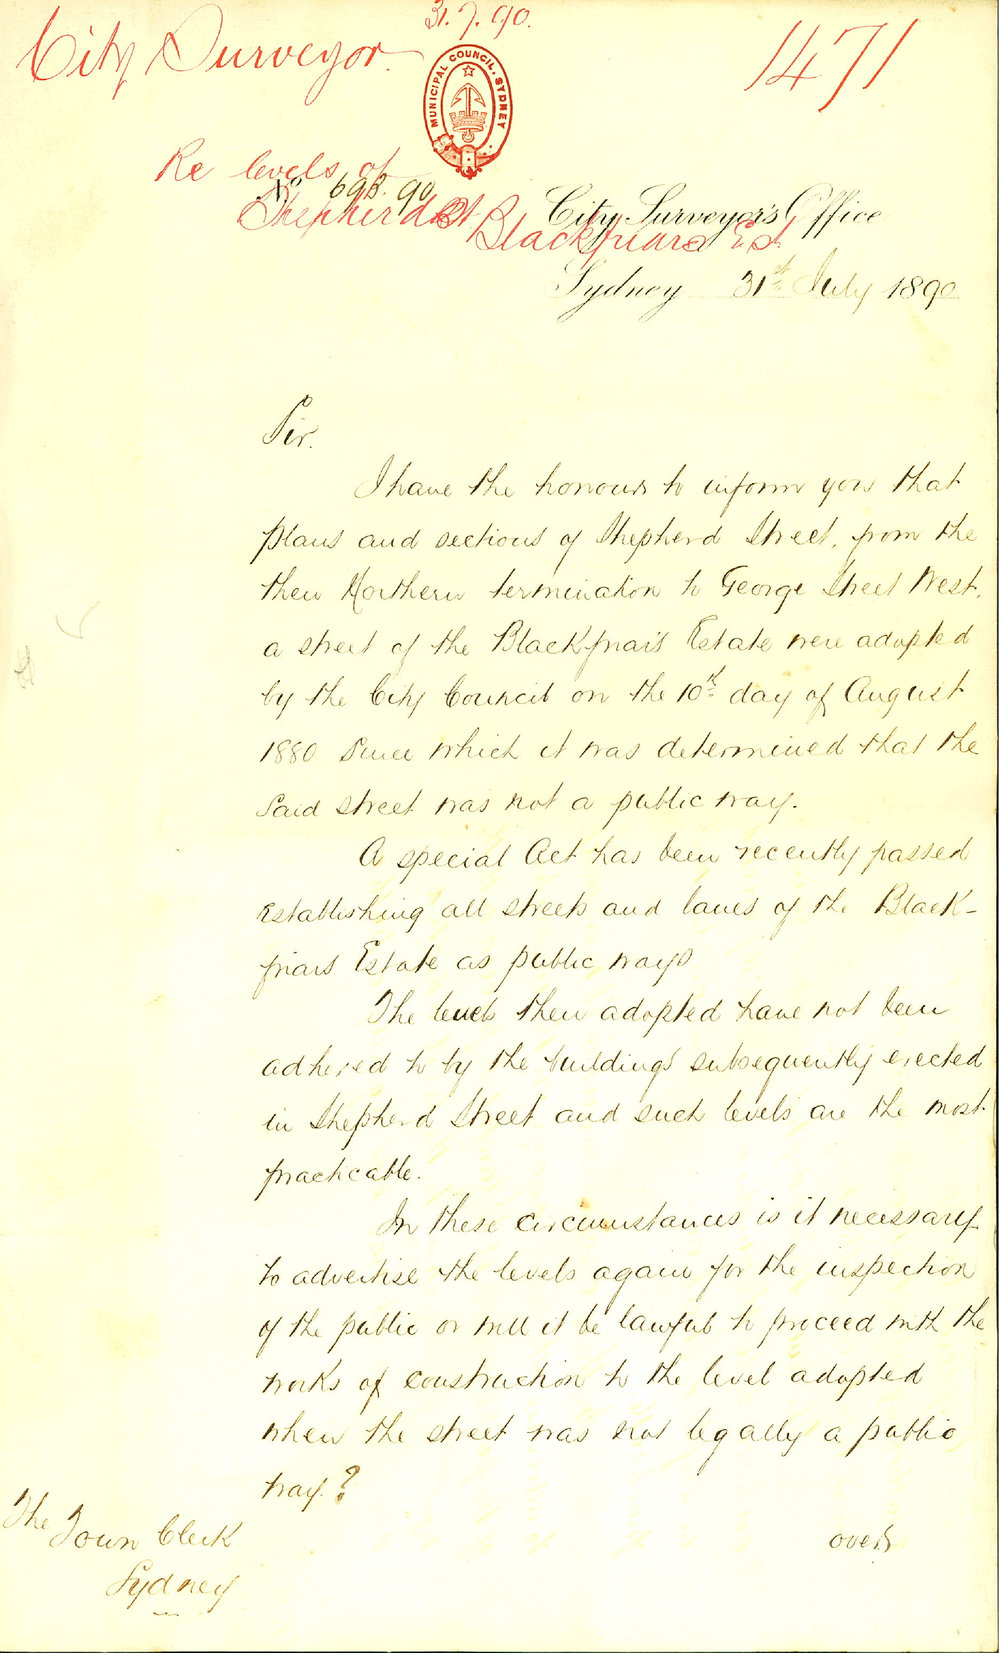 31.7.90.
City Surveyor.
1471
MUNICIPAL COUNCIL. SYDNEY
Re levels of
No 693.90
Shepherd St Blackfriars Est
City Surveyor's Office
Sydney 31st July 1890
Sir.
I have the honour to inform you that
plans and sections of Shepherd Street, from the
then Northern termination to George Street West,
a street of the Blackfriars Estate were adopted
by the City Council on the 10th day of August
1880 Since which it was determined that the
said street was not a public way.
A special Act has been recently passed
Establishing all streets and lanes of the Black-
friars Estate as public ways
The levels then adopted have not been
adhered to by the buildings subsequently erected
in Shepherd Street and such levels are the most
practicable.
In these circumstances is it necessary
to advertise the levels again for the inspection
of the public or will it be lawful to proceed with the
works of construction to the level adopted
when the street was not legally a public
way?
The
Town Clerk
Sydney
over